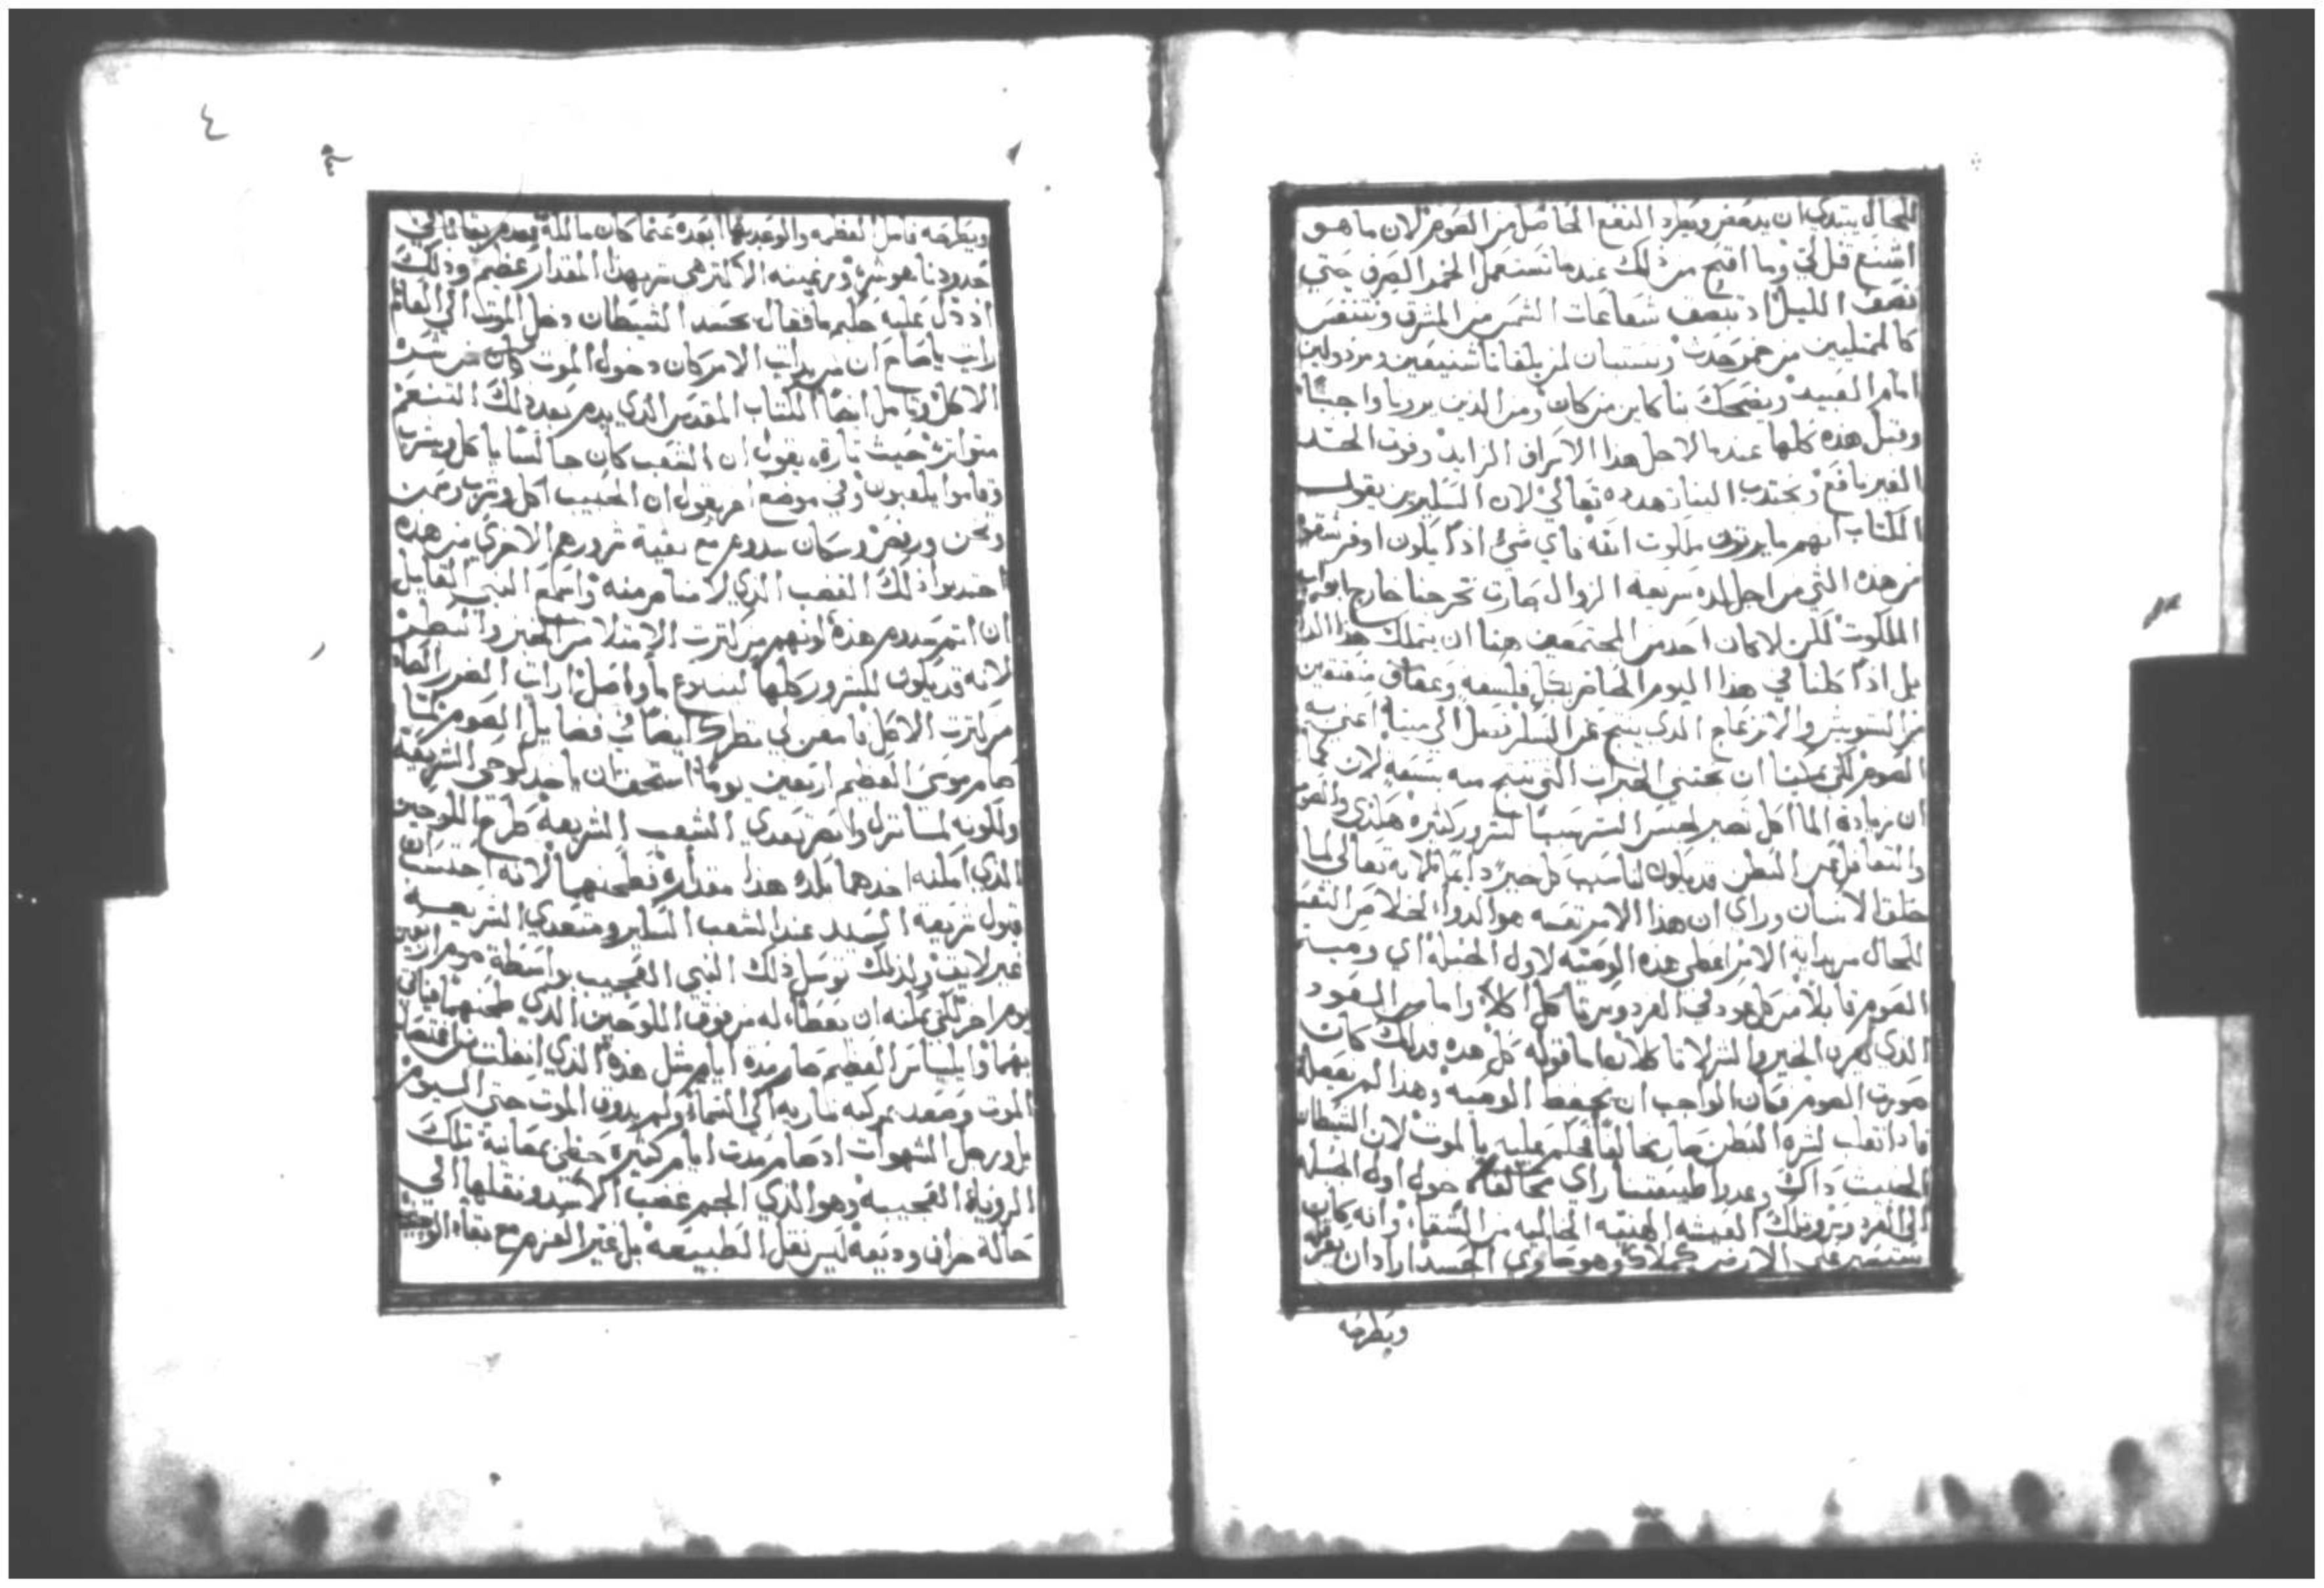 للحال يبتدي ان يدحض ويطرد النفع الحاصل من الصوم لان ما هو
اشنع قل لي وما اقبح من ذلك عندما نستعمل الخمر الصرف حتي
نصف الليل اذ تبصف شعاعات الشمس من المشرق ونتنفس
كالممتليين من خمر حدث ونستبان لمن يلقانا شنيعين ومرذولين
امام العبيد ويضحك بنا كاين من كان ومن الذين يرونا واجبًا
وقبل هذه كلها عندما لاجل هذا الاسراف الزايد وفوت الحد
الغير نافع ونجتدب الينا زهده تعالي لان السكيرين يقول
الكتاب انهم ما يرتون ملكوت الله فاي شي اذًا يكون اوفر شقوة
من هذه التي من اجل لذه سريعة الزوال صارت تخرجنا خارج ابواب
الملكوت لكن لا كان احد من المجتمعين هنا ان يتملك هذا الدا
بل اذًا كلنا في هذا اليوم الحاضر بكل فلسفه وعفاف منعتقين
من التشويش والانزعاج الذي ينتج عن السكر نصل الي مينا اعني به
الصوم لكي يمكننا ان نجتني الخيرات التي تنتج منه بسعه لان كما
ان زيادة الماكل تصير لجنس البشر سببًا لشرور كثيره هكذي والصوم
والتغافل عن البطن قد يكون لنا سبب كل خير دايمًا لانه تعالي لما
خلق الانسان وراي ان هذا الامر نفسه هو الدوا لخلاص النفس
للحال من بداية الامر اعطي هذه الوصيه لاول الجبله اي وصية
الصوم قايلًا من كل عود في الفردوس تاكل اكلا واما من العود
الذي لعرفة الخير والشر لا تاكلا نعم ما قوله كل هذه فذلك كان
صورت الصوم فكان الواجب ان يحفظ الوصيه وهذا لم يفعله
فاذ انغلب لشره البطن صار مخالفًا فحكم عليه بالموت لان الشيطان
الخبيث ذاك وعدو طبيعتنا راي مخالفة دخول اول الجبله
الي الفردوس وتلك العيشه الهنيه الخاليه من الشقا وانه كان
يستسير علي الارض كملاك وهو حاوي الجسد اراد ان يعرقله
ويطرحه
٤
ويطرحه فامل العظمه والوعد بها ابعده عنما كان مالكه بعدم بقانا في
حدودنا هو شي ورغبته الاكثر هي شر بهذا المقدار عظيم وذلك
اذ دل عليه حكيم ما فقال بحسد الشيطان دخل الموت الي العالم
رايت يا صاح ان من بدايت الامر كان دخول الموت كان من شر
الاكل وتامل ايضًا الكتاب المقدس الذي يذم بعد ذلك التنعم
متواتر حيث تاره يقول ان الشعب كان جالسًا ياكل ويشرب
وقاموا يلعبون وفي موضع اخر يقول ان الحبيب اكل وشرب وسمن
وتخن ورفص وسكان سدوم مع بقية شرورهم الاخري من هذه
اجتدبوا ذلك الغضب الذي لا مناص منه واسمع النبي القايل
ان اتم سدوم هذه انهم من كترت الامتلا من الخبز والبطر
لانه قد يكون للشرور كلها لينبوع ما واصل ارايت الضرر الصاير
من كترت الاكل فامعن لي نظرك ايضًا في فضايل الصوم لما
صام موسي العظيم اربعين يومًا استحق ان ياخذ لوحي الشريعة
ولكونه لما نزل وابصر تعدي الشعب الشريعه طرح اللوحين
الذي امكنه اخدهما بكد هذا مقداره فطحنهما لانه احتسب ان
قبول شريعة السيد عند الشعب السكير ومتعدي الشريعه
غير لايق ولذلك توسل ذلك النبي العجيب بواسطة صوم اربعين
يوم اخر لكي يمكنه ان يعطا له من فوق اللوحين الذي طحنهما
والياس العظيم صام مدة ايام مثل هذه الذي انفلت من اقتصاب
الموت وصعد بمركبه ناريه الي السما ولم يدوق الموت حتي اليوم
بل ورجل الشهوات اذ صام مدت ايام كثيره حظي بمعاينة تلك
الروية العجيبه وهو الذي الجم غضب الاسد ونقلها الي
حالة خراف وديعة ليس نقل الطبيعه بل غير العزم مع بقاء الوحشيه